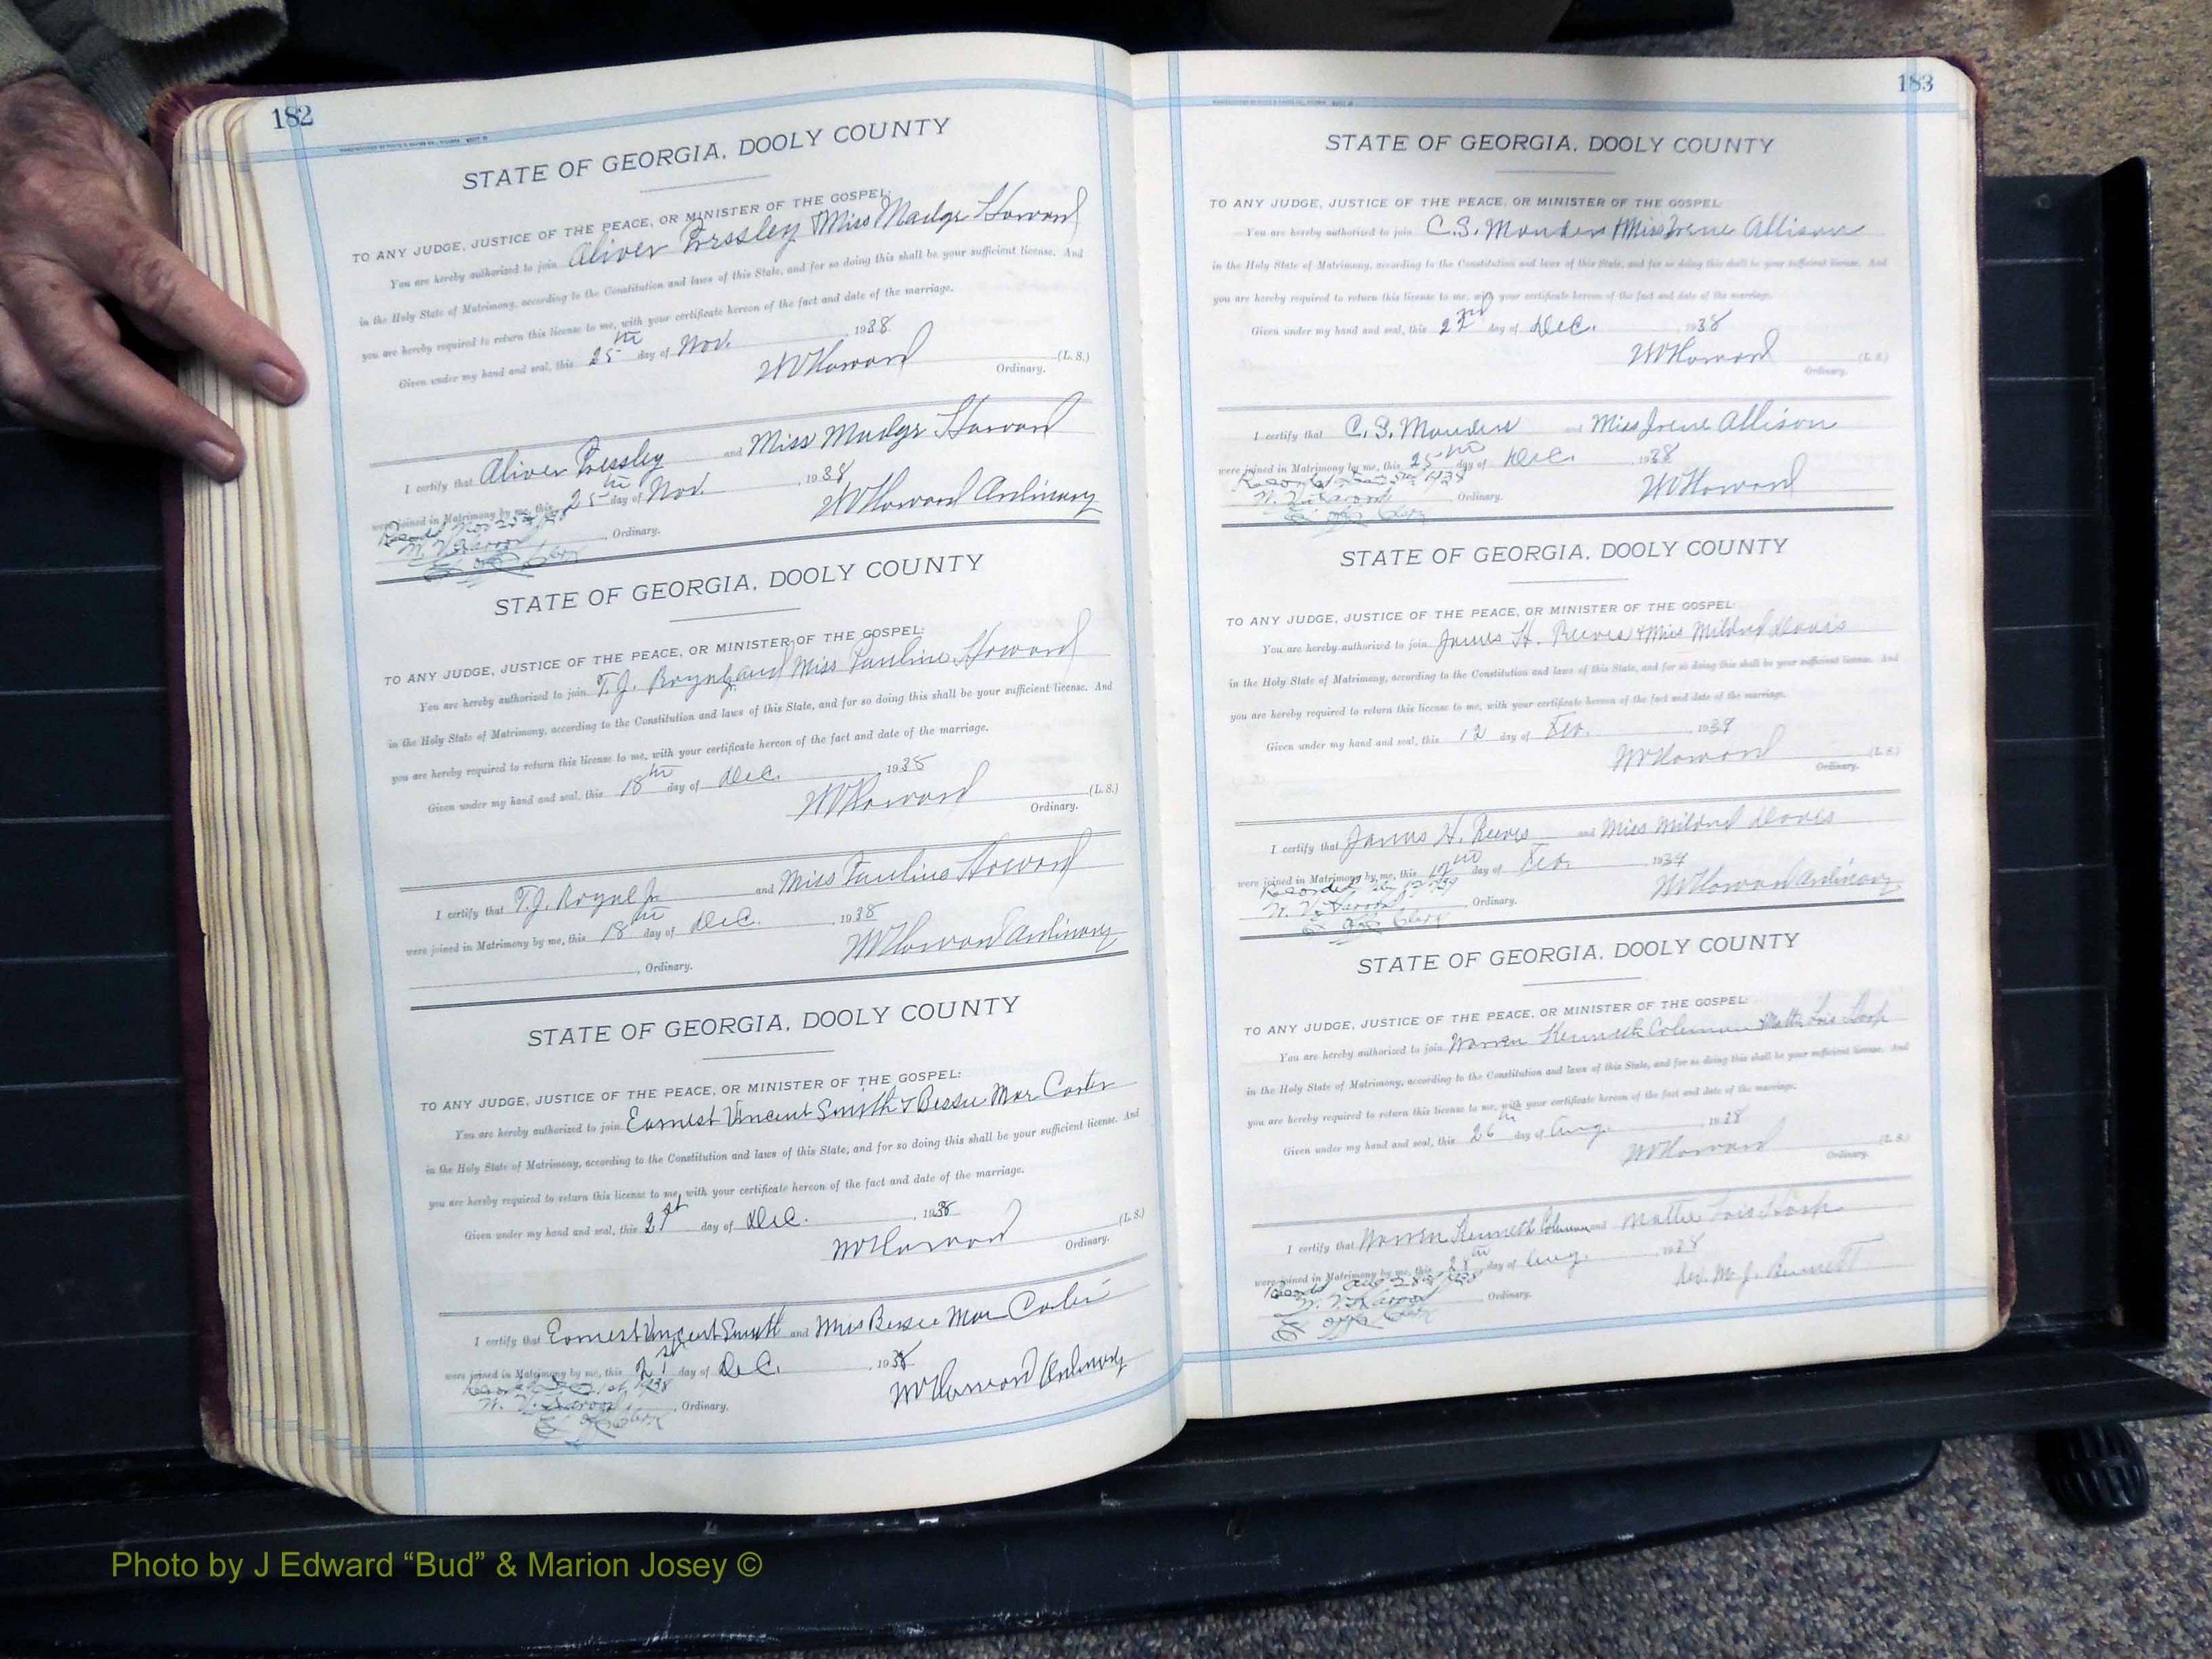 182
STATE OF GEORGIA, DOOLY COUNTY
TO ANY JUDGE, JUSTICE OF THE PEACE, OR MINISTER OF THE GOSPEL:
You are hereby authorized to join Oliver Pressley & Miss Madge Howard
in the Holy State of Matrimony, according to the Constitution and laws of this State, and for so doing this shall be your sufficient license. And
you are hereby required to return this license to me, with your certificate hereon of the fact and date of the marriage.
Given under my hand and seal, this 25th day of Nov. 1938
WVHoward (L. S.)
Ordinary.
I certify that Oliver Pressley and Miss Madge Howard
were joined in Matrimony by me, this 25th day of Nov. 1938
WVHoward Ordinary
W. V. Harvard, Ordinary.
Ex off Clerk
STATE OF GEORGIA, DOOLY COUNTY
TO ANY JUDGE, JUSTICE OF THE PEACE, OR MINISTER OF THE GOSPEL:
You are hereby authorized to join T.J. and Miss Pauline Howard
in the Holy State of Matrimony, according to the Constitution and laws of this State, and for so doing this shall be your sufficient license. And
you are hereby required to return this license to me, with your certificate hereon of the fact and date of the marriage.
Given under my hand and seal, this 18th day of Dec. 1938
WVHoward (L. S.)
Ordinary.
I certify that T.J. and Miss Pauline Howard
were joined in Matrimony by me, this 18th day of Dec. 1938
WVHoward Ordinary
, Ordinary.
STATE OF GEORGIA, DOOLY COUNTY
TO ANY JUDGE, JUSTICE OF THE PEACE, OR MINISTER OF THE GOSPEL:
You are hereby authorized to join Earnest Vincent Smith & Bessie Mae Carter
in the Holy State of Matrimony, according to the Constitution and laws of this State, and for so doing this shall be your sufficient license. And
you are hereby required to return this license to me, with your certificate hereon of the fact and date of the marriage.
Given under my hand and seal, this 21st day of Dec. 1938
WVHoward (L. S.)
Ordinary.
I certify that Earnest Vincent Smith and Miss Bessie Mae Carter
were joined in Matrimony by me, this 21st day of Dec. 1938
WVHoward Ordinary
W. V. Harvard, Ordinary.
Ex off Clerk
183
STATE OF GEORGIA, DOOLY COUNTY
TO ANY JUDGE, JUSTICE OF THE PEACE, OR MINISTER OF THE GOSPEL:
You are hereby authorized to join C.S. & Miss Irene Allison
in the Holy State of Matrimony, according to the Constitution and laws of this State, and for so doing this shall be your sufficient license. And
you are hereby required to return this license to me, with your certificate hereon of the fact and date of the marriage.
Given under my hand and seal, this 22nd day of Dec. 1938
WVHoward (L. S.)
Ordinary.
I certify that C.S. and Miss Irene Allison
were joined in Matrimony by me, this 25th day of Dec. 1938
WVHoward
W. V. Harvard, Ordinary.
Ex off Clerk
STATE OF GEORGIA, DOOLY COUNTY
TO ANY JUDGE, JUSTICE OF THE PEACE, OR MINISTER OF THE GOSPEL:
You are hereby authorized to join James H. Reeves & Miss Mildred Davis
in the Holy State of Matrimony, according to the Constitution and laws of this State, and for so doing this shall be your sufficient license. And
you are hereby required to return this license to me, with your certificate hereon of the fact and date of the marriage.
Given under my hand and seal, this 12 day of Feb. 1939
WVHoward (L. S.)
Ordinary.
I certify that James H. Reeves and Miss Mildred Davis
were joined in Matrimony by me, this 12th day of Feb. 1939
WVHoward Ordinary
Recorded Feb 12 1939
W. V. Harvard, Ordinary.
Ex off Clerk
STATE OF GEORGIA, DOOLY COUNTY
TO ANY JUDGE, JUSTICE OF THE PEACE, OR MINISTER OF THE GOSPEL:
You are hereby authorized to join Warren Kenneth Coleman & Mattie Lois
in the Holy State of Matrimony, according to the Constitution and laws of this State, and for so doing this shall be your sufficient license. And
you are hereby required to return this license to me, with your certificate hereon of the fact and date of the marriage.
Given under my hand and seal, this 26th day of Aug. 1938
WVHoward (L. S.)
Ordinary.
I certify that Warren Kenneth Coleman and Mattie Lois
were joined in Matrimony by me, this 28th day of Aug. 1938
Rev. M. J. Bennett
W. V. Harvard, Ordinary.
Ex off Clerk
Photo by J Edward “Bud” & Marion Josey ©